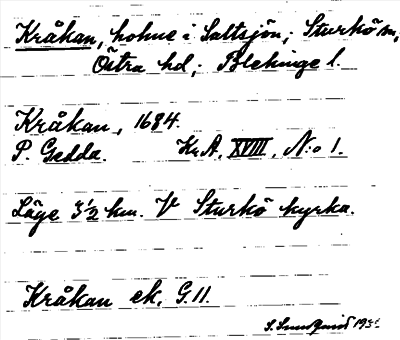 Kråkan, holme i Saltsjön; Sturkö sn,
Östra hd; Blekinge l.
Kråkan, 1684.
P. Gedda. Kr.A. XVIII, N:o 1.
Läge 3 1/2 km. V Sturkö kyrka.
Kråkan ek. G. 11.
S. Sundquist 193